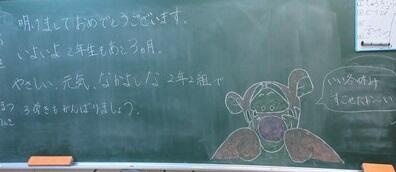 明けましておめでとうございます。
いよいよ2年生もあと3ヶ月。
やさしい、元気、なかよしな2年2組で
3学きもがんばりましょう。
いい冬休み
すごせたかーい